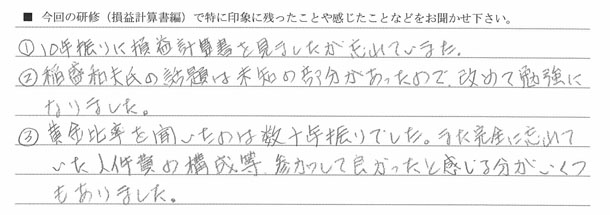 ■ 今回の研修（損益計算書編）で特に印象に残ったことや感じたことなどをお聞かせ下さい。
①10年振りに損益計算書を見ましたが忘れていました。
②稲盛和夫氏の話題は未知の部分があったので、改めて勉強に
なりました。
③黄金比率を聞いたのは数十年振りでした。また完全に忘れて
いた人件費の構成等、参加して良かったと感じる分がいくつ
もありました。